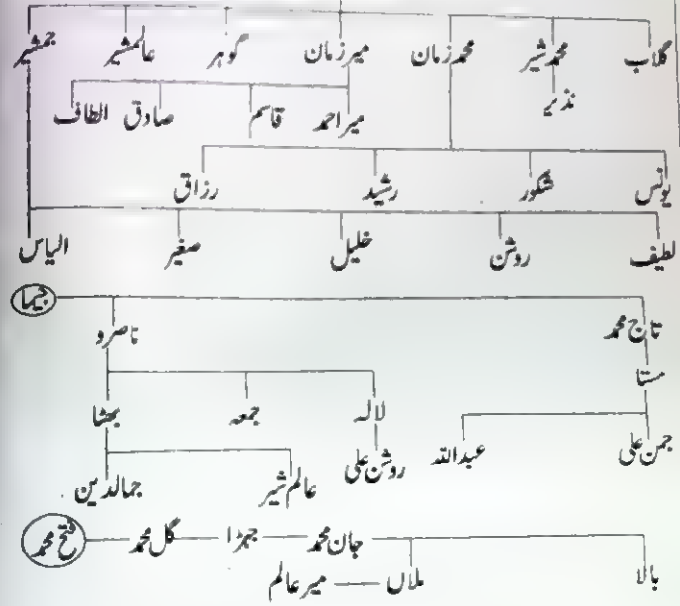 گلاب محمد شیر محمد زمان میر زمان گوہر عالمشیر جمشیر
نذیر
میر احمد قاسم صادق الطاف
یونس شکور رشید رزاق
لطیف روشن خلیل صغیر الیاس
جیہا
تاج محمد ناصرو
مستا
لالہ جمعہ بھشا
جمن علی عبداللہ روشن علی عالم شیر جمالدین
فتح محمد گل محمد جہڑا جان محمد
بالا ملاں میر عالم